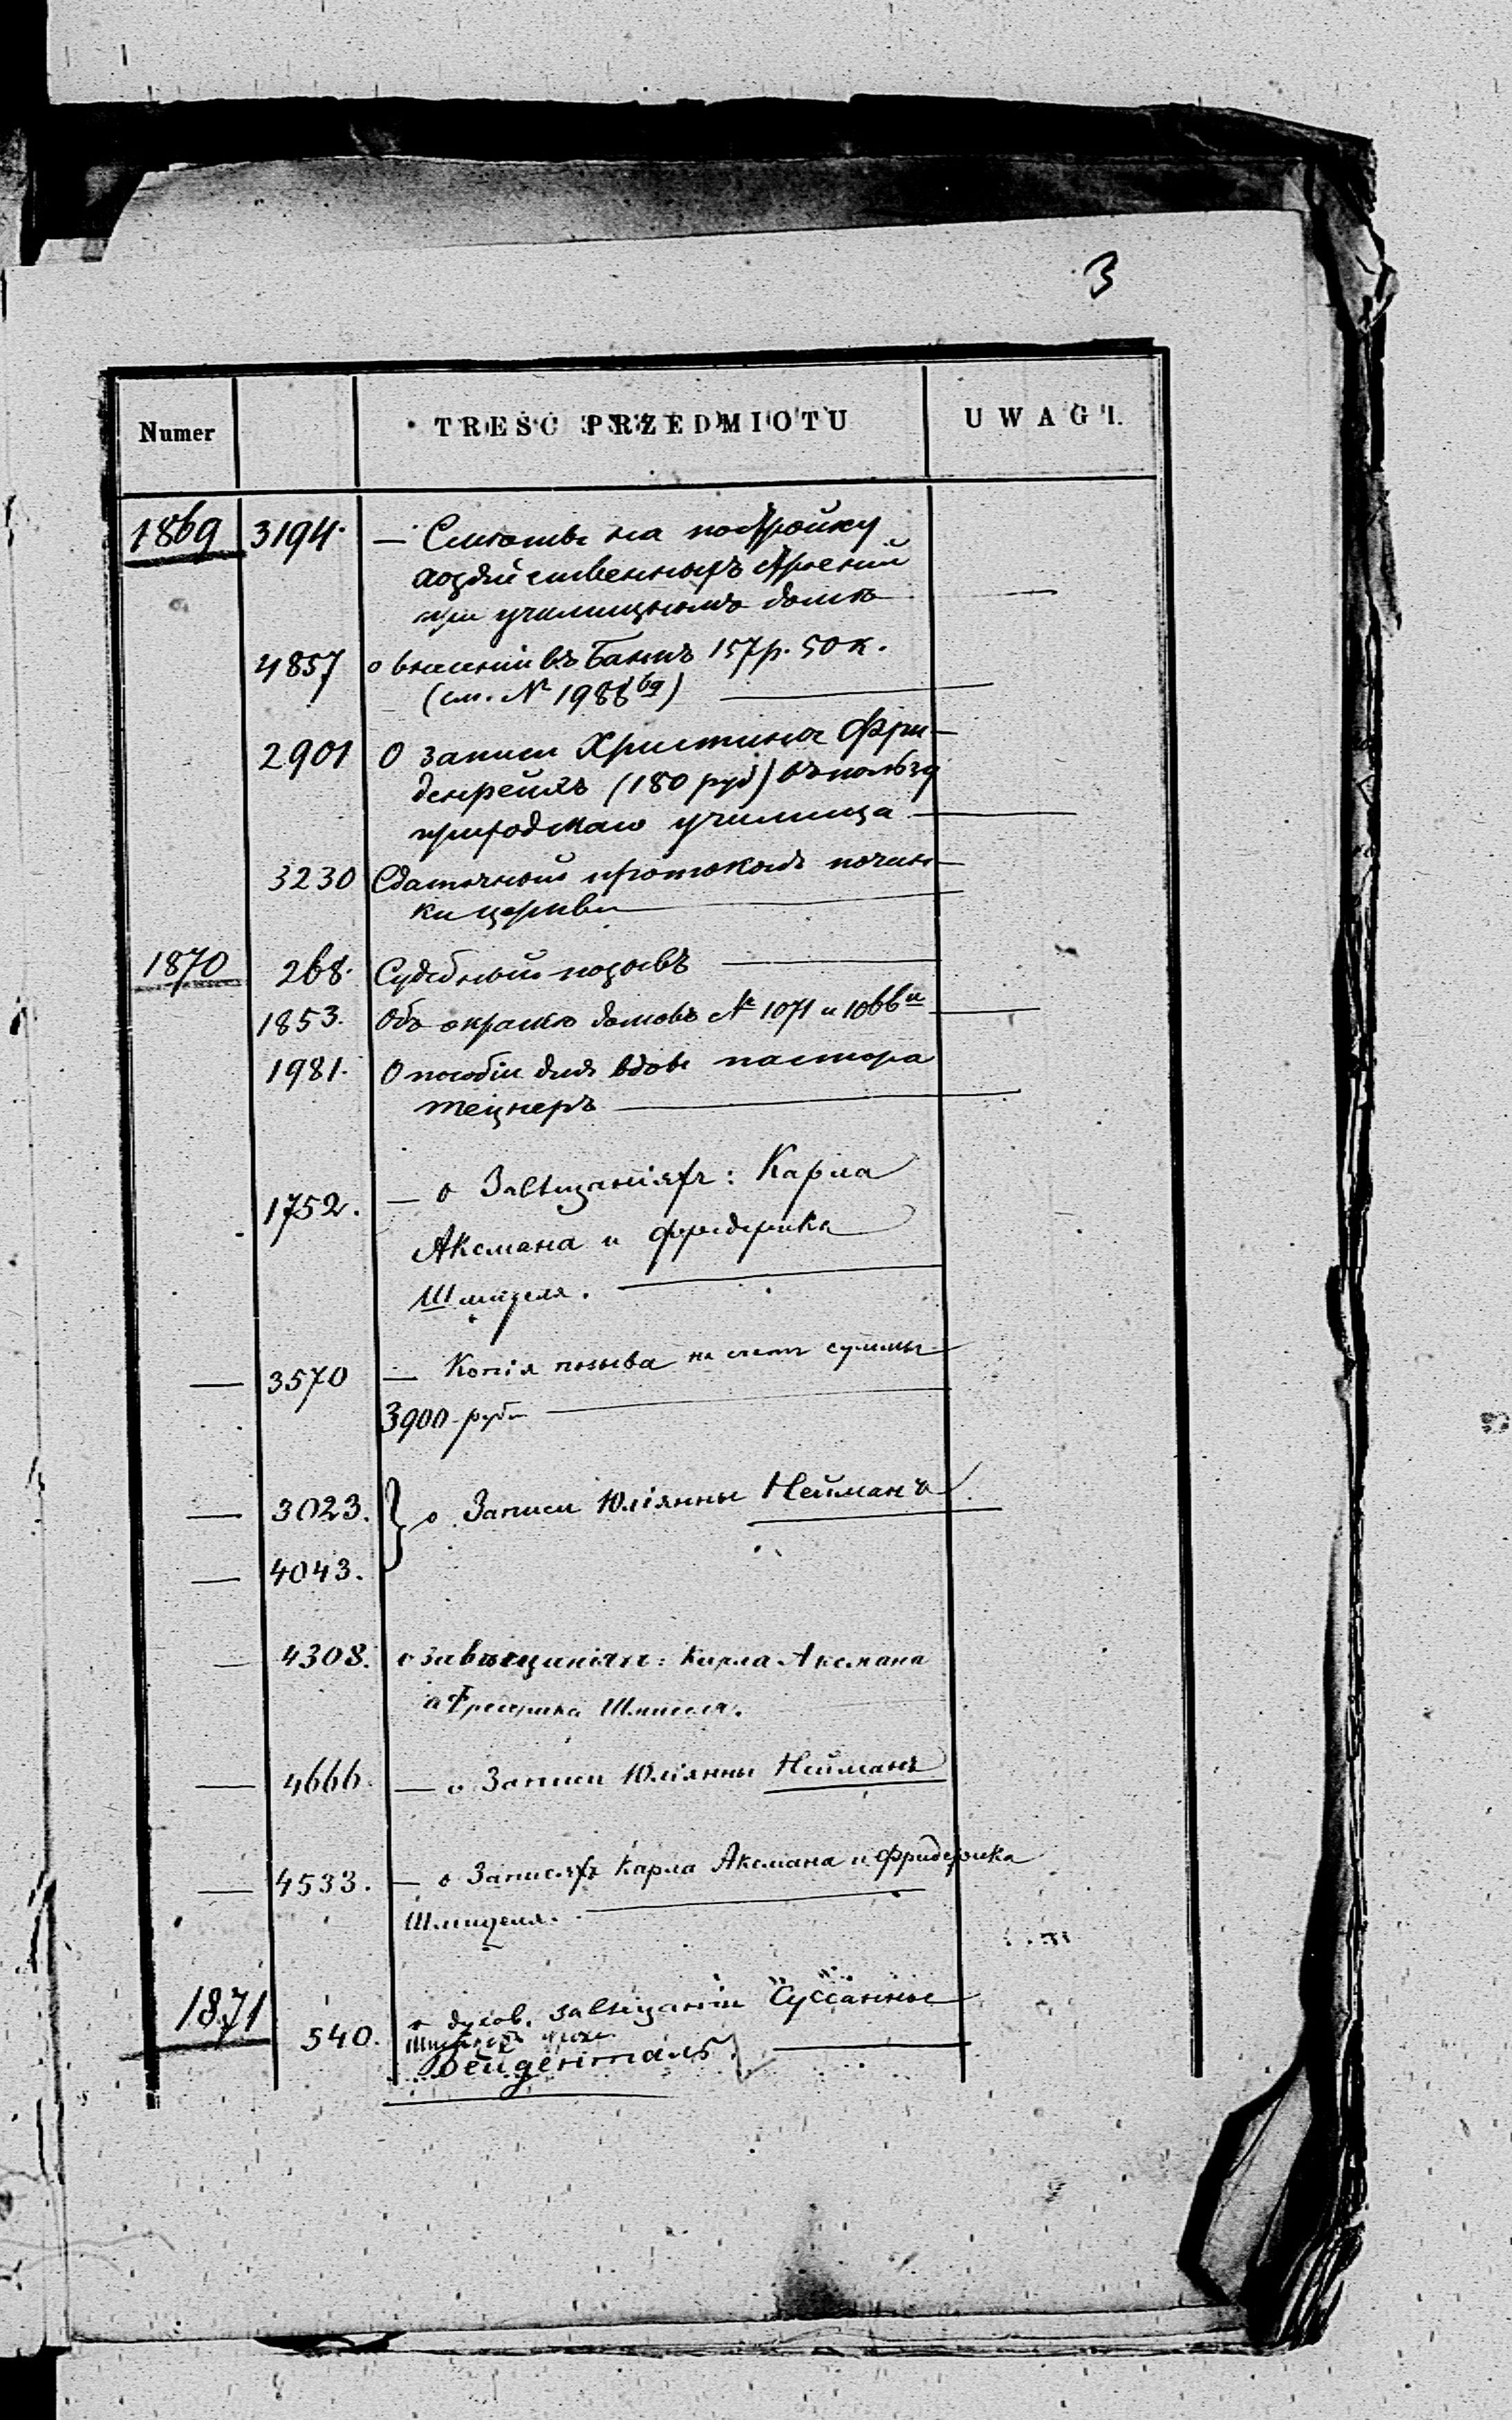 3
Numer TREŚĆ PRZEDMIOTU UWAGI.
1869 3194. — Смѣты на постройку
хозяйственныхъ строеній
при училищномъ домѣ
4857 о внесеніи въ Банкъ 157 р. 50 к.
(см. № 1988 69)
2901 О записи Христины Фри-
денрейхъ (180 руб) въ пользу
приходскаго училища
3230 Сдаточный протоколъ почин-
ки церкви
1870 268. Судебный позывъ
1853. Объ окраскѣ домовъ № 1071 и 1066
1981. О пособіи для вдовы пастора
Тецнеръ
1752. — о Завѣщаніяхъ: Карла
Аксмана и Фридерика
Шмицеля.
— 3570 — Копія позыва на счетъ суммы
3900 руб
— 3023. о Записи Юліянны Нейманъ
— 4043.
— 4308. о завѣщаніяхъ: Карла Аксмана
и Фридерика Шмицеля.
— 4666. — о Записи Юліянны Нейманъ
— 4533. — о Записяхъ Карла Аксмана и Фридерика
Шмицеля.
1871 540. о духов. завѣщаніи Сусанны
Бейденталь